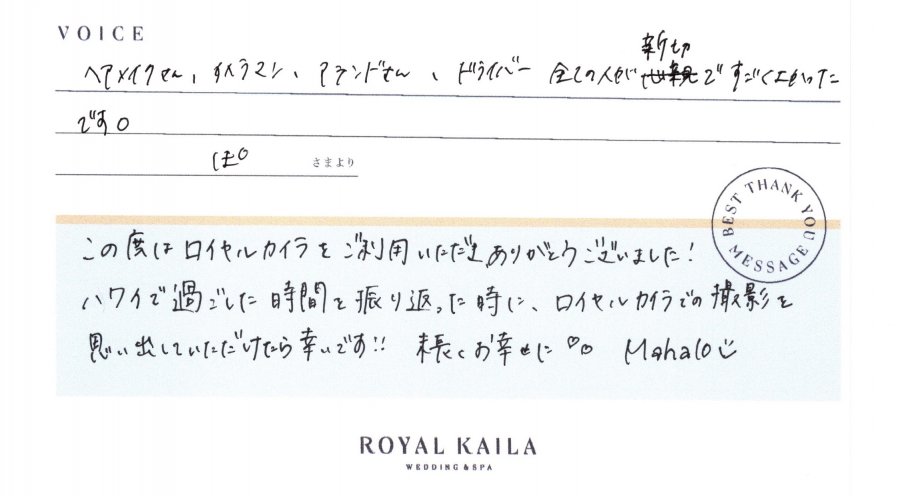 VOICE
新切
ヘアメイクさん、カメラマン、アテンドさん、ドライバー 全ての人が ですごくよかった
です。
ぽ さまより
BEST THANK YOU MESSAGE
この度はロイヤルカイラをご利用いただきありがとうございました!
ハワイで過ごした時間を振り返った時に、ロイヤルカイラでの撮影を
思い出していただけたら幸いです!! 末長くお幸せに♡♡ Mahalo
ROYAL KAILA
WEDDING & SPA